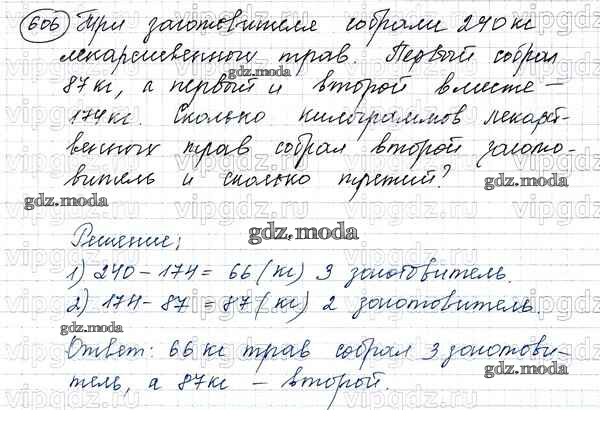 606 Три заготовителя собрали 240 кг
лекарственных трав. Первый собрал
gdz.moda
87 кг, а первый и второй вместе –
174 кг. Сколько килограммов лекарст-
венных трав собрал второй загото-
витель и сколько третий?
gdz.moda
gdz.moda
gdz.moda
Решение;
1) 240 – 174 = 66 (кг) 3 заготовитель.
2) 174 – 87 = 87 (кг) 2 заготовитель.
gdz.moda
Ответ: 66 кг трав собрал 3 заготови-
тель, а 87 кг – второй.
gdz.moda